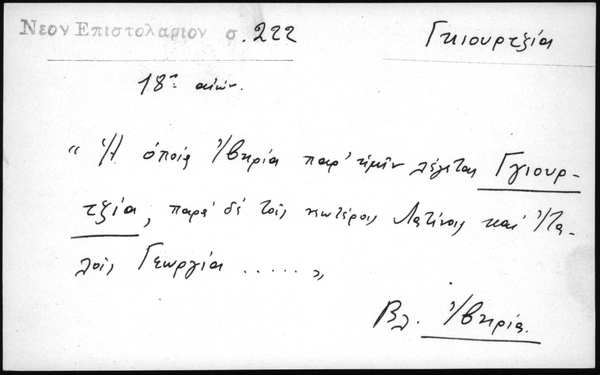 Νεον Επιστολαριον σ. 222
Γκιουρτζία
18ος αιών.
"Ἡ ὁποία Ἰβηρία παρ' ἡμῖν λέγεται Γγιουρ-
τζία, παρά δέ τοῖς νεωτέροις Λατίνοις καί Ἰτα-
λοῖς Γεωργία ....."
Βλ. Ἰβηρία.